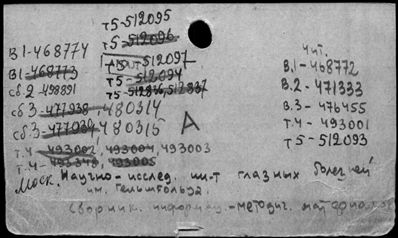 т5-512095
В1-468774 т5-512096
В1-468773 т5-512097
т5-512094
сб.2-498891 т5-512816, 512837
сб3-477938, 480314
сб.3-477039 480315
А
т.4-493002, 493004, 493003
т.4-493348, 493005
Чит.
В.1-468772
В.2-471333
В.3-476455
т.4-493001
т5-512093
Моск. Научно-исслед. ин-т глазных болезней
им. Гельмгольца.
Сборник. информац.-методич. материалов